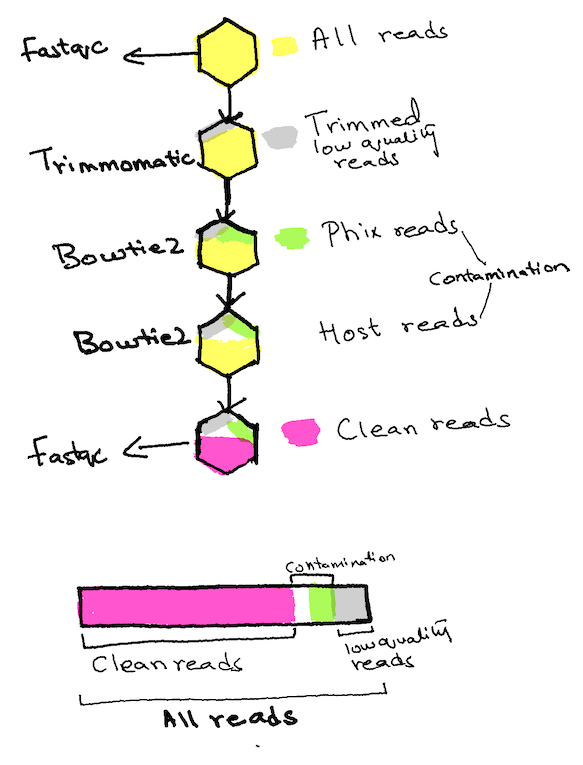 Fastqc
All reads
Trimmomatic
Trimmed
low quality
reads
Bowtie2
Phix reads
Contamination
Bowtie2
Host reads
Fastqc
Clean reads
Contamination
Clean reads
low quality
reads
All reads